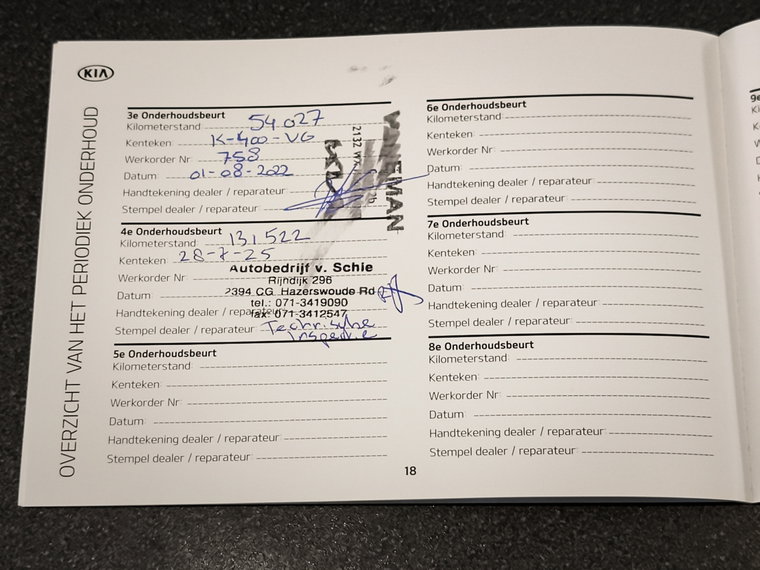 KIA
OVERZICHT VAN HET PERIODIEK ONDERHOUD
3e Onderhoudsbeurt
Kilometerstand 54.027
Kenteken: K-400-VG
Werkorder Nr 758
Datum 01-08-2022
Handtekening dealer / reparateur
Stempel dealer / reparateur
2132
KIA
4e Onderhoudsbeurt
Kilometerstand 131.522
Kenteken 28-7-25
Werkorder Nr
Datum
Handtekening dealer / reparateur
Stempel dealer / reparateur
Autobedrijf v. Schie
Rijndijk 296
2394 CG Hazerswoude Rd
tel.: 071-3419090
fax: 071-3412547
Technische
5e Onderhoudsbeurt
Kilometerstand
Kenteken:
Werkorder Nr:
Datum:
Handtekening dealer / reparateur
Stempel dealer / reparateur
6e Onderhoudsbeurt
Kilometerstand
Kenteken:
Werkorder Nr
Datum
Handtekening dealer / reparateur
Stempel dealer / reparateur
7e Onderhoudsbeurt
Kilometerstand:
Kenteken:
Werkorder Nr
Datum:
Handtekening dealer / reparateur
Stempel dealer / reparateur
8e Onderhoudsbeurt
Kilometerstand
Kenteken:
Werkorder Nr:
Datum:
Handtekening dealer / reparateur
Stempel dealer / reparateur
18
9e